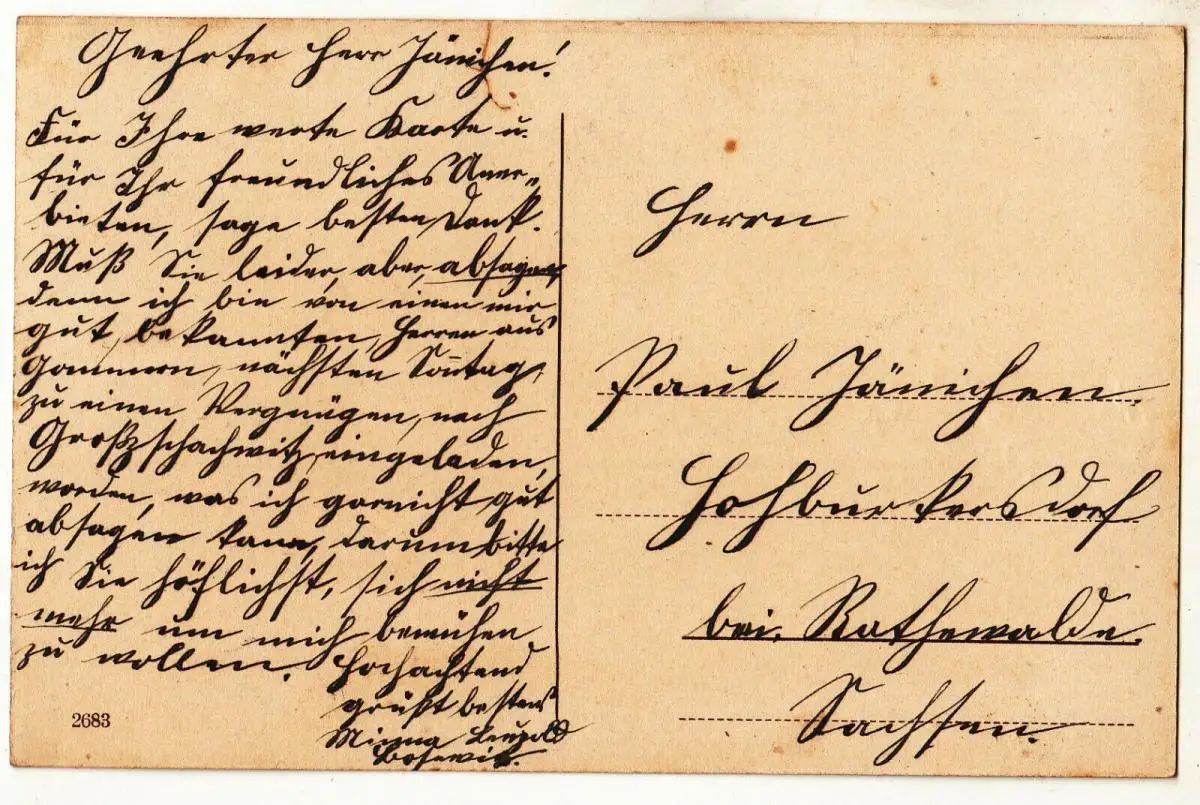 Geehrter Herr Jänichen!
Für Ihre werte Karte u.
für Ihr freundliches Aner-
bieten, sage besten Dank.
Muß Sie leider, aber, absagen,
denn ich bin von einen mir
gut, bekannten, Herren aus
Gommern, nächsten Sontag,
zu einen Vergnügen, nach
Großzschachwitz, eingeladen,
worden, was ich garnicht gut
absagen kann, darum bitte
ich Sie höflichst, sich nicht
mehr um mich bemühen
zu wollen. Hochachtend
grüßt bestens
Minna Leupold
Bosewitz.
2683
Herrn
Paul Jänichen.
Hohburkersdorf
bei. Rathewalde.
Sachsen.